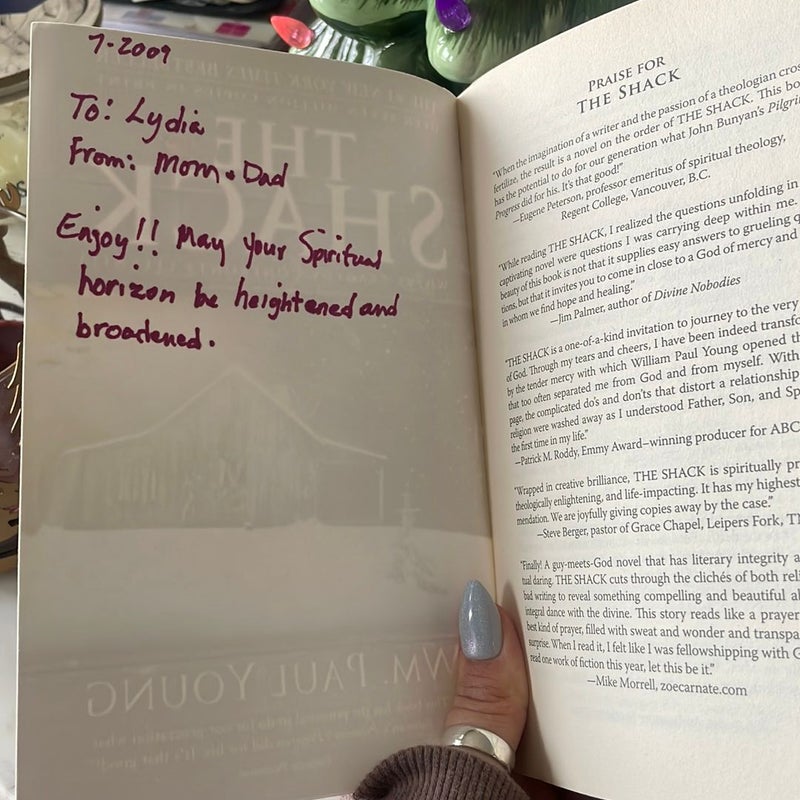 7-2009
To: Lydia
From: Mom & Dad
Enjoy!! May your Spiritual
horizon be heightened and
broadened.
THE
SHACK
WM PAUL YOUNG
PRAISE FOR
THE SHACK
"When the imagination of a writer and the passion of a theologian cros
fertilize, the result is a novel on the order of THE SHACK. This bo
has the potential to do for our generation what John Bunyan's Pilgri
Progress did for his. It's that good!"
—Eugene Peterson, professor emeritus of spiritual theology,
Regent College, Vancouver, B.C.
"While reading THE SHACK, I realized the questions unfolding in
captivating novel were questions I was carrying deep within me.
beauty of this book is not that it supplies easy answers to grueling q
tions, but that it invites you to come in close to a God of mercy and
in whom we find hope and healing."
—Jim Palmer, author of Divine Nobodies
"THE SHACK is a one-of-a-kind invitation to journey to the very
of God. Through my tears and cheers, I have been indeed transfo
by the tender mercy with which William Paul Young opened th
that too often separated me from God and from myself. With
page, the complicated do's and don'ts that distort a relationship
religion were washed away as I understood Father, Son, and Sp
the first time in my life."
—Patrick M. Roddy, Emmy Award–winning producer for ABC
"Wrapped in creative brilliance, THE SHACK is spiritually pr
theologically enlightening, and life-impacting. It has my highest
mendation. We are joyfully giving copies away by the case."
—Steve Berger, pastor of Grace Chapel, Leipers Fork, T
"Finally! A guy-meets-God novel that has literary integrity a
tual daring. THE SHACK cuts through the clichés of both reli
bad writing to reveal something compelling and beautiful ab
integral dance with the divine. This story reads like a prayer
best kind of prayer, filled with sweat and wonder and transpa
surprise. When I read it, I felt like I was fellowshipping with G
read one work of fiction this year, let this be it."
—Mike Morrell, zoecarnate.com